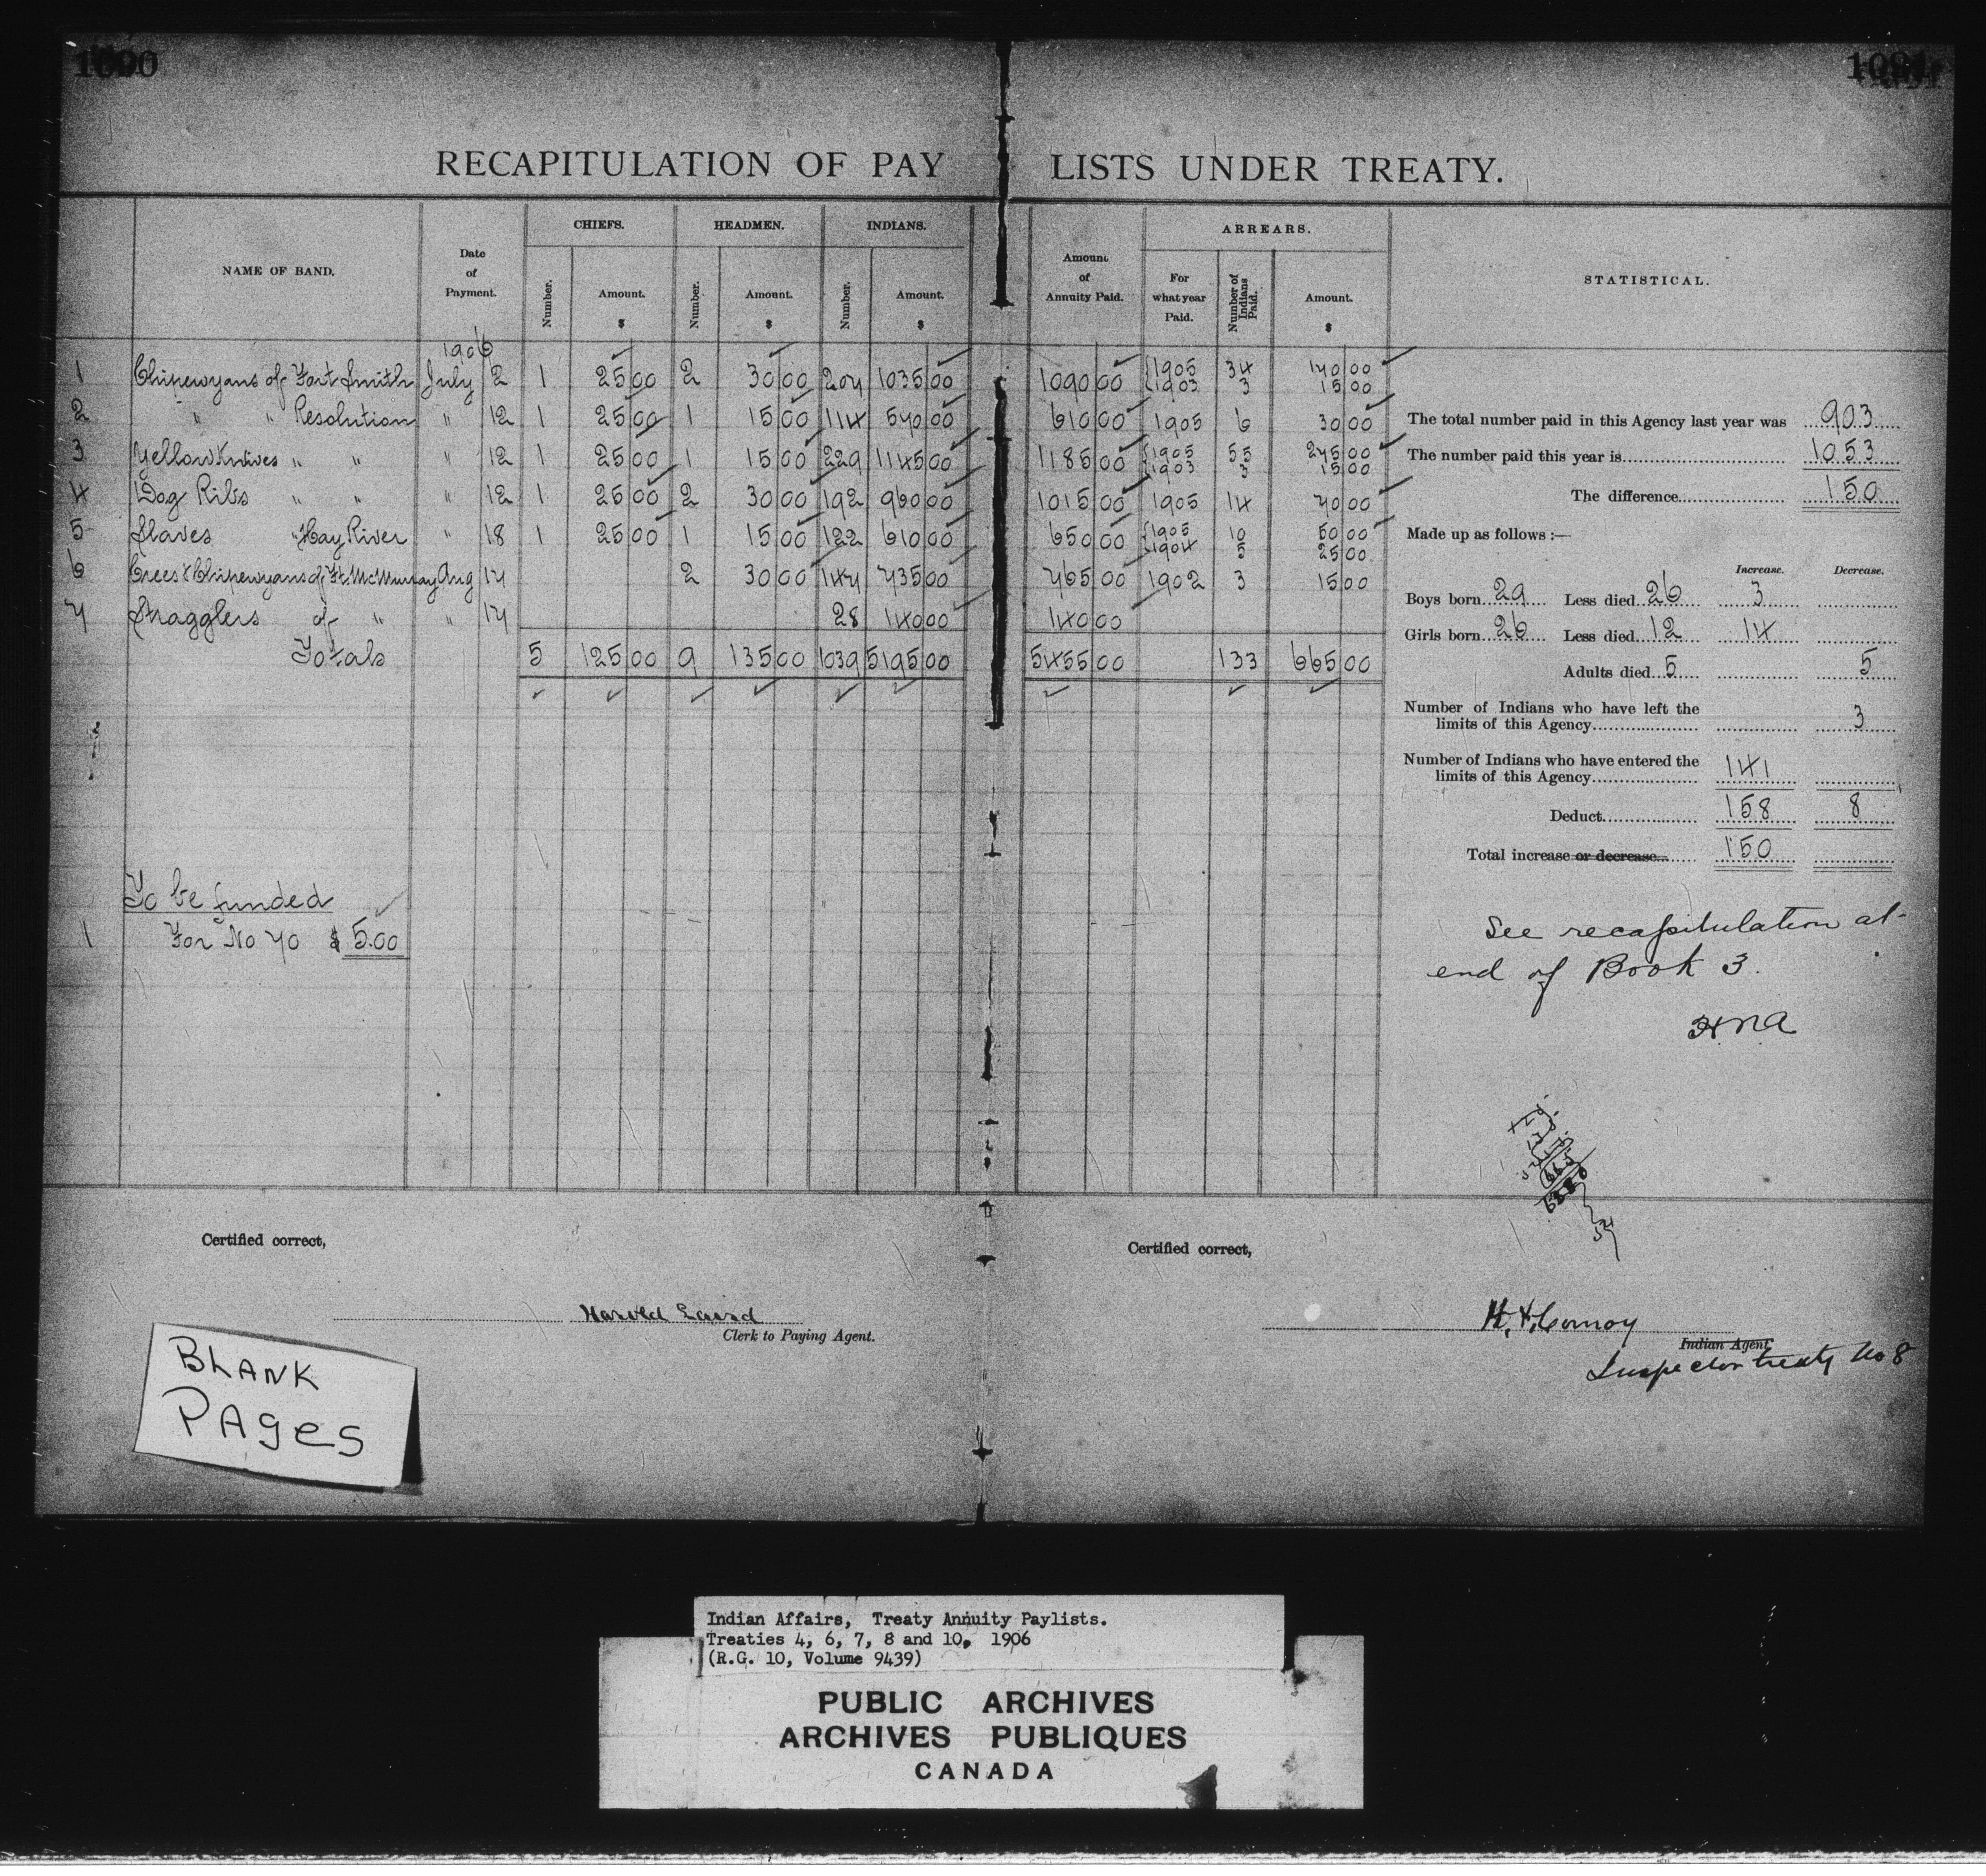 1090
1091
RECAPITULATION OF PAY LISTS UNDER TREATY.
NAME OF BAND. Date of Payment. CHIEFS. Number. Amount. $ HEADMEN. Number. Amount. $ INDIANS. Number. Amount. $ Amount of Annuity Paid. ARREARS. For what year Paid. Number of Indians Paid. Amount. $ STATISTICAL.
1906
1 Chipewyans of Fort Smith July 2 1 25 00 2 30 00 207 1035 00 1090 00 1905 34 170 00
1903 3 15 00
2 " " Resolution " 12 1 25 00 1 15 00 114 570 00 610 00 1905 6 30 00
3 Yellow Knives " " " 12 1 25 00 1 15 00 229 1145 00 1185 00 1905 55 275 00
1903 3 15 00
4 Dog Ribs " " " 12 1 25 00 2 30 00 192 960 00 1015 00 1905 14 70 00
5 Slaves " Hay River " 18 1 25 00 1 15 00 122 610 00 650 00 1905 10 50 00
1904 5 25 00
6 Crees & Chipewyans of Ft. McMurray Aug 17 2 30 00 147 735 00 765 00 1902 3 15 00
7 Stragglers of " " 17 28 140 00 140 00
Totals 5 125 00 9 135 00 1039 5195 00 5455 00 133 665 00
To be funded
1 For No 70 $ 5.00
The total number paid in this Agency last year was 903
The number paid this year is 1053
The difference 150
Made up as follows :—
Increase. Decrease.
Boys born 29 Less died 26 3
Girls born 26 Less died 12 14
Adults died 5 5
Number of Indians who have left the
limits of this Agency 3
Number of Indians who have entered the
limits of this Agency 141
Deduct 158 8
Total increase or decrease 150
See recapitulation at
end of Book 3.
Certified correct,
Harold Laird
Clerk to Paying Agent.
Certified correct,
H. A. Conroy
Indian Agent.
Inspector treaty No 8
BLANK
PAges
Indian Affairs, Treaty Annuity Paylists.
Treaties 4, 6, 7, 8 and 10, 1906
(R.G. 10, Volume 9439)
PUBLIC ARCHIVES
ARCHIVES PUBLIQUES
CANADA